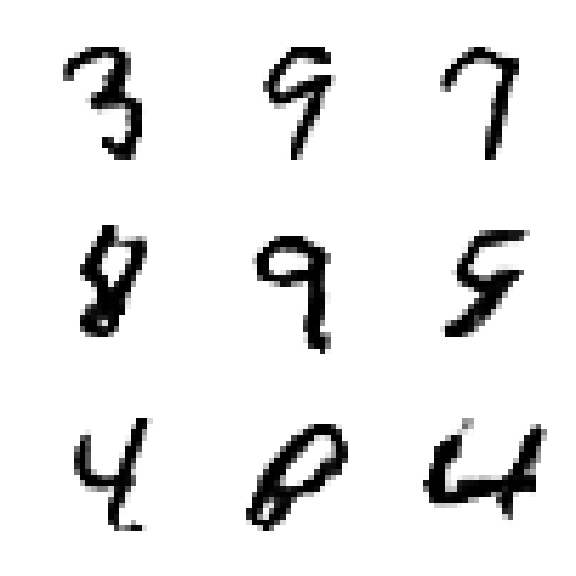 3 9 7
8 9 5
4 8 4